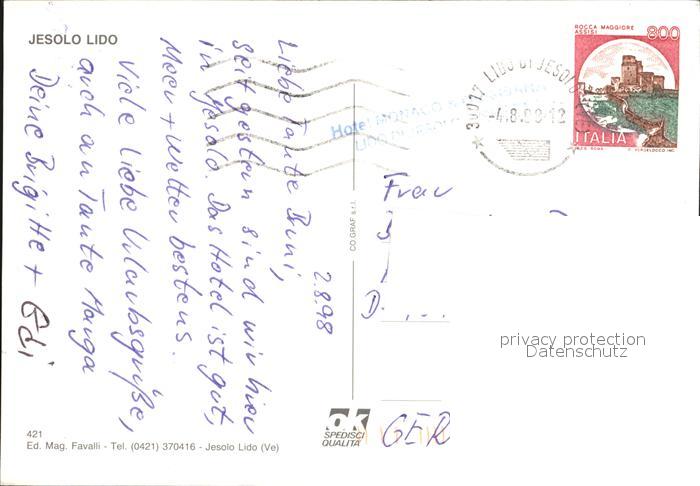 JESOLO LIDO
2.8.98
Liebe Tante Buni,
seit gestern sind wir hier
in Jesolo. Das Hotel ist gut,
Meer + Wetter bestens.
Viele liebe Urlaubsgrüße,
auch an Tante Marga
Deine Brigitte + Edi
421
Ed. Mag. Favalli - Tel. (0421) 370416 - Jesolo Lido (Ve)
CO GRAF s.r.l.
ok
SPEDISCI
QUALITÀ
Hotel MONACO
LIDO DI JESOLO
30017 LIDO DI JESOLO
-4.8.98-12
ROCCA MAGGIORE
ASSISI
800
ITALIA
Frau
S
D
GER
privacy protection
Datenschutz